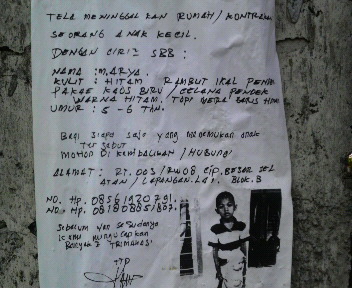 TELA MENINGGAL KAN RUMAH / KONTRAKA
SEORANG ANAK KECIL.
DENGAN CIRI2 SBB :
NAMA : M. ARYA.
KULIT : HITAM RAMBUT IKAL PENDE
PAKAE KAOS BIRU / CELANA PENDEK
WARNA HITAM. TOPI MERA BARIS HITAM
UMUR : 5 - 6 THN.
BAGI SIAPA SAJA yang MENEMUKAN ANAK
TERSEBUT
MOHON DI KEMBALIKAN / HUBUNGI
ALAMAT : RT. 003 / RW 08 CIP. BESAR SEL
ATAN / LAPANGAN. BLOK. B
NO. HP.
NO. HP.
SEBELUM DAN SESUDANYA
KAMI MENGUCAPKAN
BANYAK2 TRIMAKASI
TTD